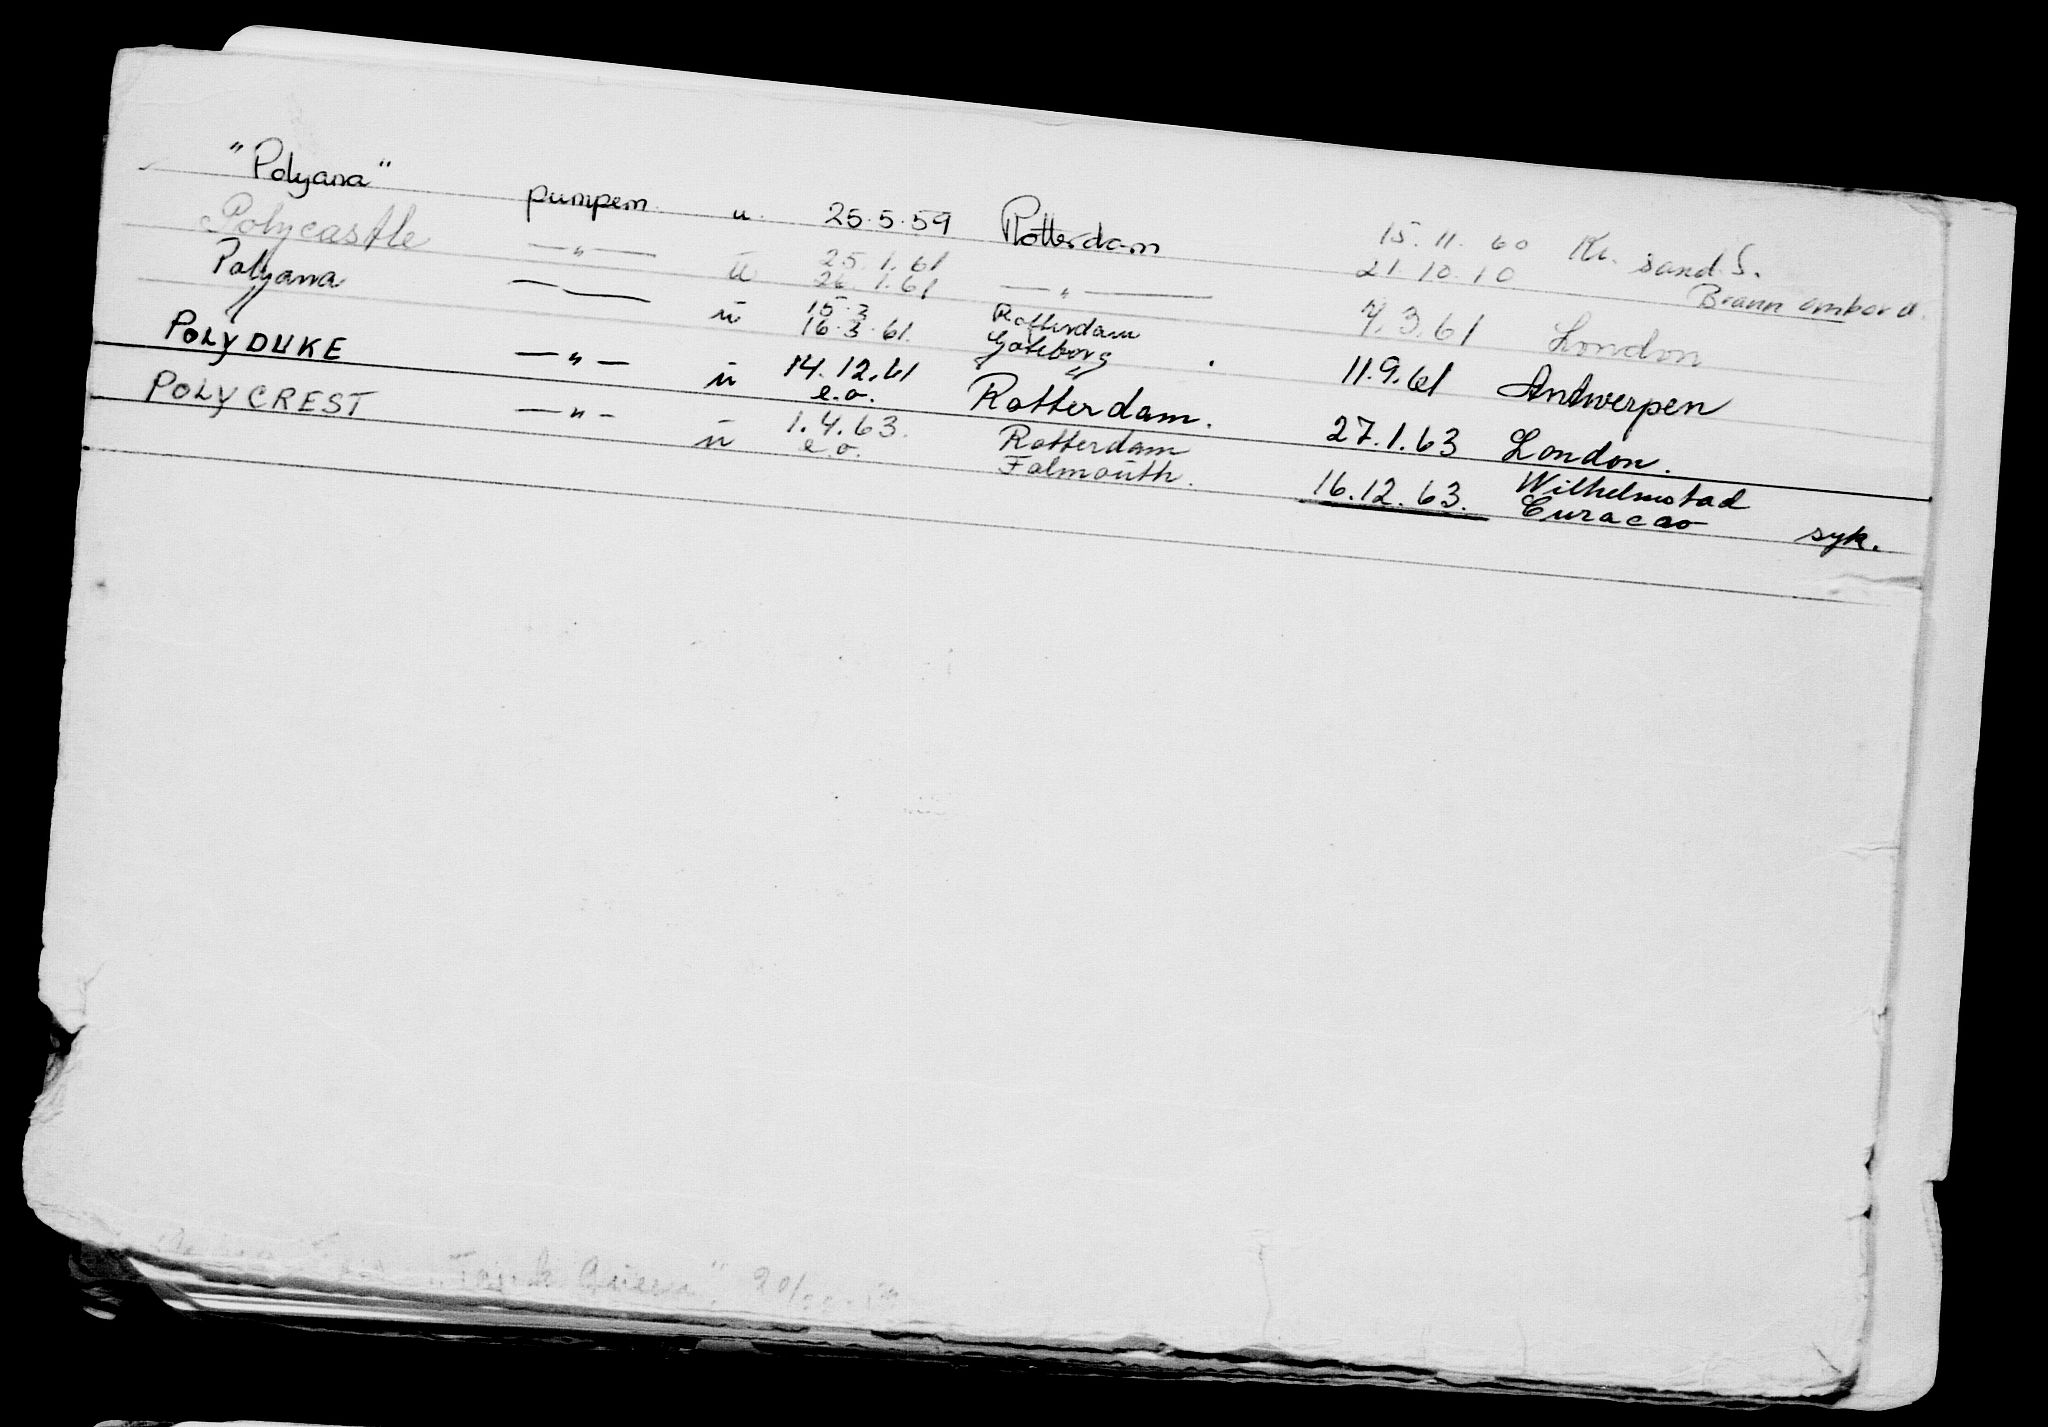 "Polyana" pumpem. u. 25.5.59 Rotterdam 15.11.60 Kr. sand S.
21.10.10 Brann ombord.
Polycastle —"— u 25.1.61
26.1.61 —"— 7.3.61 London
Polyana —"— u 15.3 Rotterdam
16.3.61. Göteborg. 11.9.61 Antwerpen
POLYDUKE —"— u 14.12.61
e.o. Rotterdam. 27.1.63 London.
POLYCREST —"— u 1.4.63. Rotterdam
e.o. Falmouth. 16.12.63. Wilhelmstad
Curacao syk.